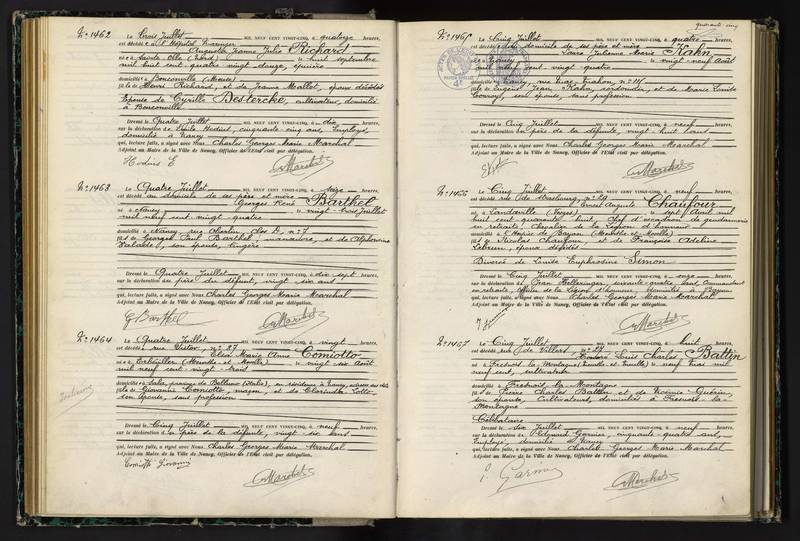 N° 1462 Le Trois Juillet MIL NEUF CENT VINGT-CINQ, à quatorze heures,
est décédée à l'Hôpital
Augustine Jeanne Julie Richard
née à Sainte Olle (Nord) le huit septembre
mil huit cent quatre vingt douze, épicière
domiciliée à Bouconville (Meuse)
fille de Henri Richard, et de Jeanne Mallet, époux décédés
Épouse de Cyrille Besterche, cultivateur, domicilié
à Bouconville
Dressé le Quatre Juillet MIL NEUF CENT VINGT-CINQ, à dix heures,
sur la déclaration de Emile Hoduis, cinquante cinq ans, Employé,
domicilié à Nancy
qui, lecture faite, a signé avec Nous Charles Georges Marie Marchal
Adjoint au Maire de la Ville de Nancy, Officier de l'Etat civil par délégation.
Hoduis E CMarchal
N° 1463 Le Quatre Juillet MIL NEUF CENT VINGT-CINQ, à seize heures,
est décédé au domicile de ses père et mère
Georges René Barthel
né à Nancy le vingt trois Juillet
mil neuf cent vingt quatre
domicilié à Nancy rue Charles
fils de Georges Paul Barthel, manœuvre, et de Alphonsine
son épouse, lingère
Dressé le Quatre Juillet MIL NEUF CENT VINGT-CINQ, à dix sept heures,
sur la déclaration du père du défunt, vingt six ans
qui, lecture faite, a signé avec Nous Charles Georges Marie Marchal
Adjoint au Maire de la Ville de Nancy, Officier de l'Etat civil par délégation.
G Barthel CMarchal
N° 1464 Le Quatre Juillet MIL NEUF CENT VINGT-CINQ, à vingt heures,
est décédée rue N° 27
Elisa Marie Anne Comiotto
née à Crévillier (Meurthe et Moselle) le vingt six Août
mil neuf cent vingt trois
domiciliée à province de Bellune (Italie), en résidence à Nancy,
fille de Giovanni Comiotto maçon, et de Clorinda
son épouse, sans profession
Dressé le Cinq Juillet MIL NEUF CENT VINGT-CINQ, à neuf heures,
sur la déclaration du père de la défunte, vingt six ans
qui, lecture faite, a signé avec Nous Charles Georges Marie Marchal
Adjoint au Maire de la Ville de Nancy, Officier de l'Etat civil par délégation.
Comiotto Giovanni CMarchal
quarante cinq
N° 1465 Le Cinq Juillet MIL NEUF CENT VINGT-CINQ, à quatre heures,
est décédée au domicile de ses père et mère
Laure Julienne Marie Kahn
née à Nancy le vingt neuf Août
mil neuf cent vingt quatre
domiciliée à Nancy, rue
fille de Eugène Jean Kahn, cordonnier, et de Marie Louise
son épouse, sans profession
Dressé le Cinq Juillet MIL NEUF CENT VINGT-CINQ, à neuf heures,
sur la déclaration du père de la défunte, vingt huit ans
qui, lecture faite, a signé avec Nous Charles Georges Marie Marchal
Adjoint au Maire de la Ville de Nancy, Officier de l'Etat civil par délégation.
CMarchal
N° 1466 Le Cinq Juillet MIL NEUF CENT VINGT-CINQ, à neuf heures,
est décédé rue de Strasbourg, N° 29
Ernest Auguste Chaufour
né à Landaville (Vosges) le sept Avril mil
huit cent quarante huit, Chef d'escadron de gendarmerie
en retraite, Chevalier de la Légion d'honneur
domicilié à l'Hospice de Bayon (Meurthe et Moselle)
fils de Nicolas Chaufour, et de Françoise Adeline
Lebrun, époux décédés
Divorcé de Louise Euphrosine Simon
Dressé le Cinq Juillet MIL NEUF CENT VINGT-CINQ, à onze heures,
sur la déclaration de Jean Helleringer, soixante quatre ans, Commandant
en retraite, Officier de la Légion d'honneur, domicilié à Bayon
qui, lecture faite, a signé avec Nous Charles Georges Marie Marchal
Adjoint au Maire de la Ville de Nancy, Officier de l'Etat civil par délégation.
CMarchal
N° 1467 Le Cinq Juillet MIL NEUF CENT VINGT-CINQ, à huit heures,
est décédé rue de Villers
Louis Charles Battin
né à Fresnois la Montagne (Meurthe et Moselle) le neuf Mai mil
neuf cent, cultivateur
domicilié à Fresnois la Montagne
fils de Pierre Charles Battin et de Guérin,
son épouse, Cultivateurs, domiciliés à Fresnois la
Montagne
Célibataire
Dressé le six Juillet MIL NEUF CENT VINGT-CINQ, à neuf heures,
sur la déclaration de Edgnard Garnier, cinquante quatre ans,
Employé, domicilié à Nancy
qui, lecture faite, a signé avec Nous Charles Georges Marie Marchal
Adjoint au Maire de la Ville de Nancy, Officier de l'Etat civil par délégation.
CMarchal